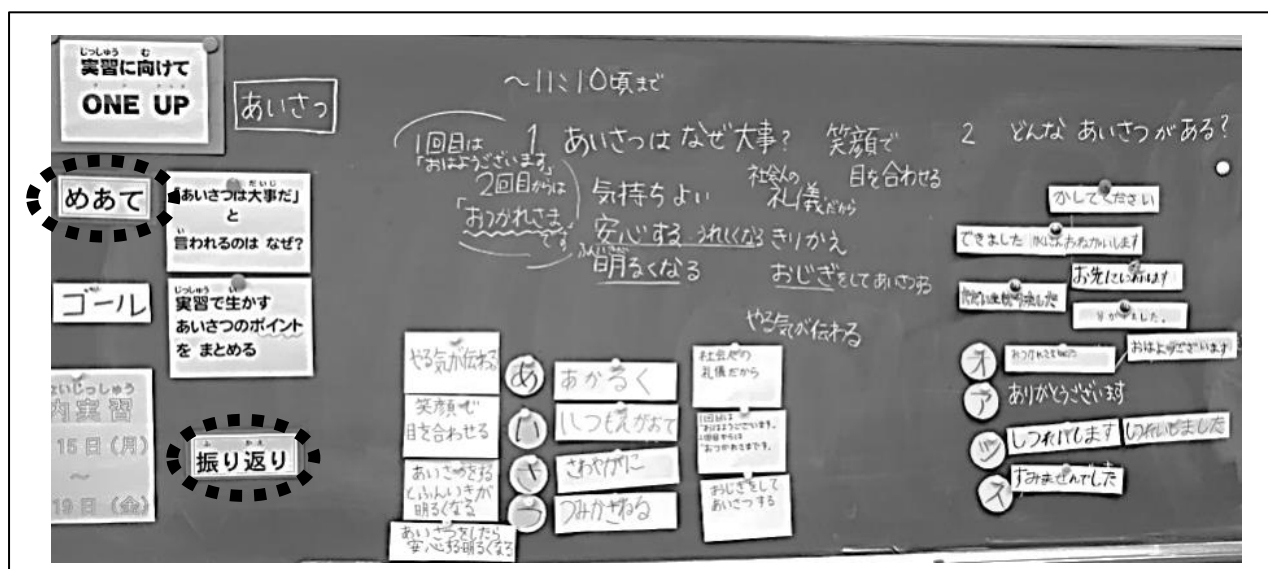 じっしゅう む
実習に向けて
ONE UP
あいさつ
めあて
だいじ
「あいさつは大事だ」
と
い
言われるのは なぜ?
ゴール
じっしゅう い
実習で生かす
あいさつのポイント
を まとめる
内実習
15日(月)
~
19日(金)
ふ かえ
振り返り
~11:10頃まで
1回目は
「おはようございます」
2回目からは
「おつかれさま
です」
1 あいさつは なぜ大事?
気持ちよい
安心する うれしくなる
ふんいき
明るくなる
笑顔で
目を合わせる
社会人の
礼儀だから
きりかえ
おじぎをしてあいさつする
やる気が伝わる
やる気が伝わる
笑顔で
目を合わせる
あいさつをする
とふんいきが
明るくなる
あいさつをしたら
安心する明るくなる
あ あかるく
い いつもえがおで
さ さわやかに
つ つみかさねる
社会人の
礼儀だから
1回目は
「おはようございます。」
2回目からは
「おつかれさまです。」
おじぎをして
あいさつする
2 どんな あいさつがある?
かしてください
できました かくにんおねがいします
お先にいただきます
ただいまもどりました
オ
おはようございます
ア ありがとうございます
ツ しつれいします しつれいしました
ス すみませんでした